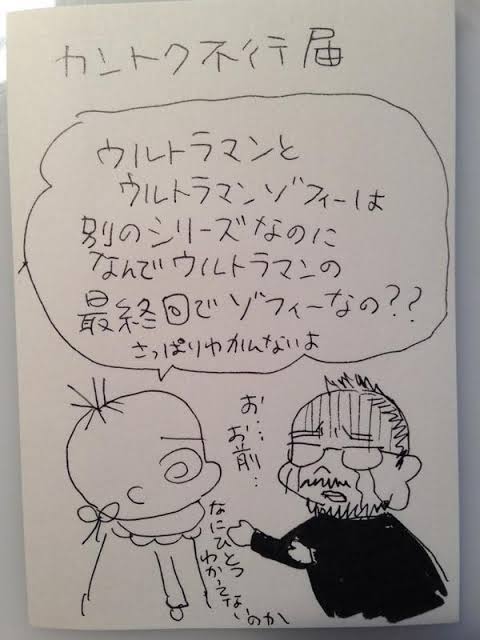 カントク不行届
ウルトラマンと
ウルトラマンゾフィーは
別のシリーズなのに
なんでウルトラマンの
最終回でゾフィーなの??
さっぱりわかんないよ
お…
お前…
なにひとつ
わかってない
のか